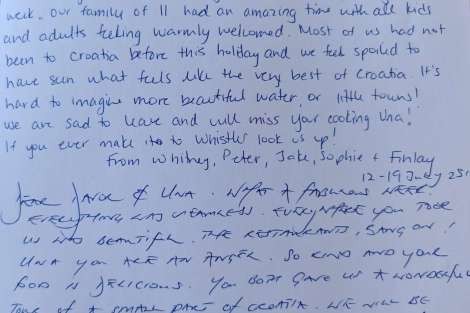 week. Our family of 11 had an amazing time with all kids
and adults feeling warmly welcomed. Most of us had not
been to Croatia before this holiday and we feel spoiled to
have seen what feels like the very best of Croatia. It's
hard to imagine more beautiful water, or little towns!
We are sad to leave and will miss your cooking Una!
If you ever make it to Whistler look us up!
From Whitney, Peter, Jake, Sophie + Finlay
12-19 July 25
DEAR & UNA. WHAT A FABULOUS WEEK.
EVERYTHING WAS SEAMLESS. EVERYWHERE YOU TOOK
US WAS BEAUTIFUL. THE RESTAURANTS,
UNA YOU ARE AN ANGEL. SO KIND AND YOUR
FOOD IS DELICIOUS. YOU BOTH GAVE US A WONDERFUL
TOUR OF A SMALL PART OF CROATIA. WE WILL BE